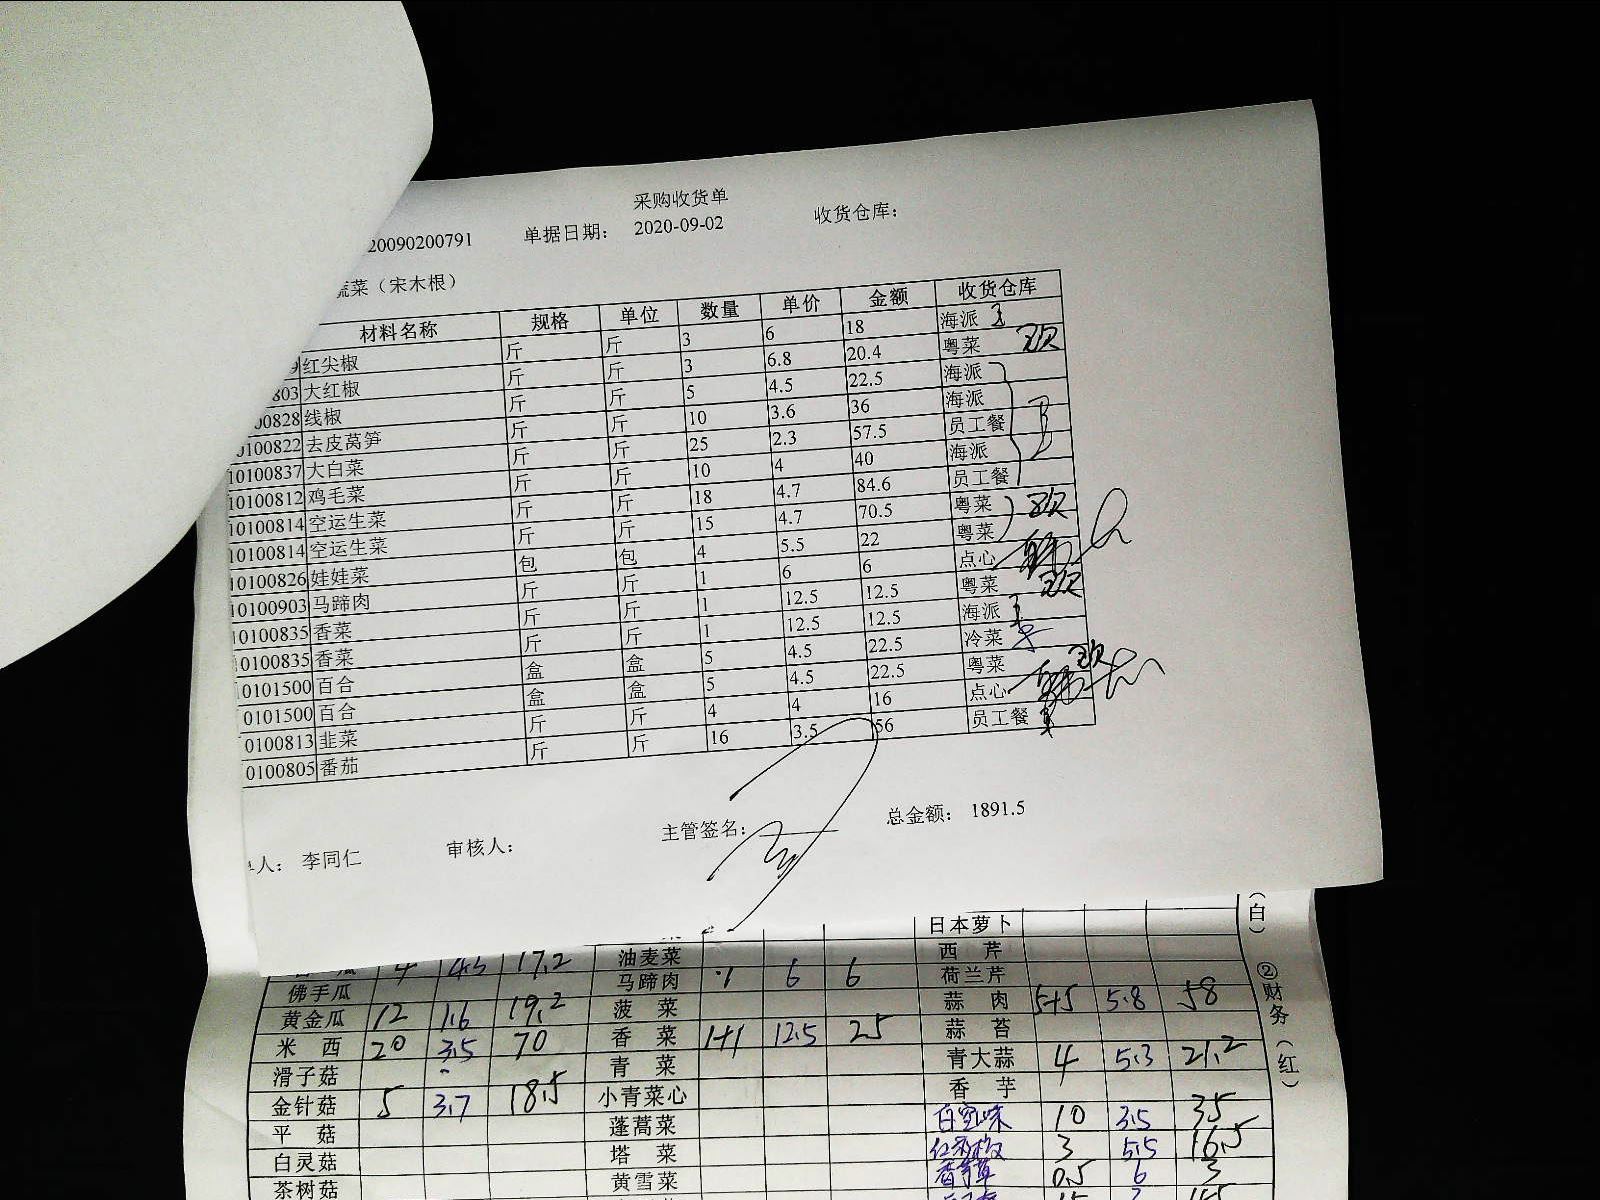 采购收货单
20090200791 单据日期： 2020-09-02 收货仓库：
蔬菜（宋木根）
材料名称 规格 单位 数量 单价 金额 收货仓库
9 红尖椒 斤 斤 3 6 18 海派
803 大红椒 斤 斤 3 6.8 20.4 粤菜
00828 线椒 斤 斤 5 4.5 22.5 海派
0100822 去皮莴笋 斤 斤 10 3.6 36 海派
10100837 大白菜 斤 斤 25 2.3 57.5 员工餐
10100812 鸡毛菜 斤 斤 10 4 40 海派
10100814 空运生菜 斤 斤 18 4.7 84.6 员工餐
10100814 空运生菜 斤 斤 15 4.7 70.5 粤菜
10100826 娃娃菜 包 包 4 5.5 22 粤菜
10100903 马蹄肉 斤 斤 1 6 6 点心
10100835 香菜 斤 斤 1 12.5 12.5 粤菜
10100835 香菜 斤 斤 1 12.5 12.5 海派
10101500 百合 盒 盒 5 4.5 22.5 冷菜
0101500 百合 盒 盒 5 4.5 22.5 粤菜
0100813 韭菜 斤 斤 4 4 16 点心
0100805 番茄 斤 斤 16 3.5 56 员工餐
人： 李同仁 审核人： 主管签名： 总金额： 1891.5
日本萝卜
瓜 4 4.3 17.2 油麦菜 西芹
佛手瓜 马蹄肉 1 6 6 荷兰芹
黄金瓜 12 1.6 19.2 菠菜 蒜肉 5+5 5.8 58
米西 20 3.5 70 香菜 1+1 12.5 25 蒜苔
滑子菇 青菜 青大蒜 4 5.3 21.2
金针菇 5 3.7 18.5 小青菜心 香芋
平菇 蓬蒿菜 10 3.5 35
白灵菇 塔菜 3 5.5 16.5
茶树菇 黄雪菜 0.5 6 3
（白）②财务（红）